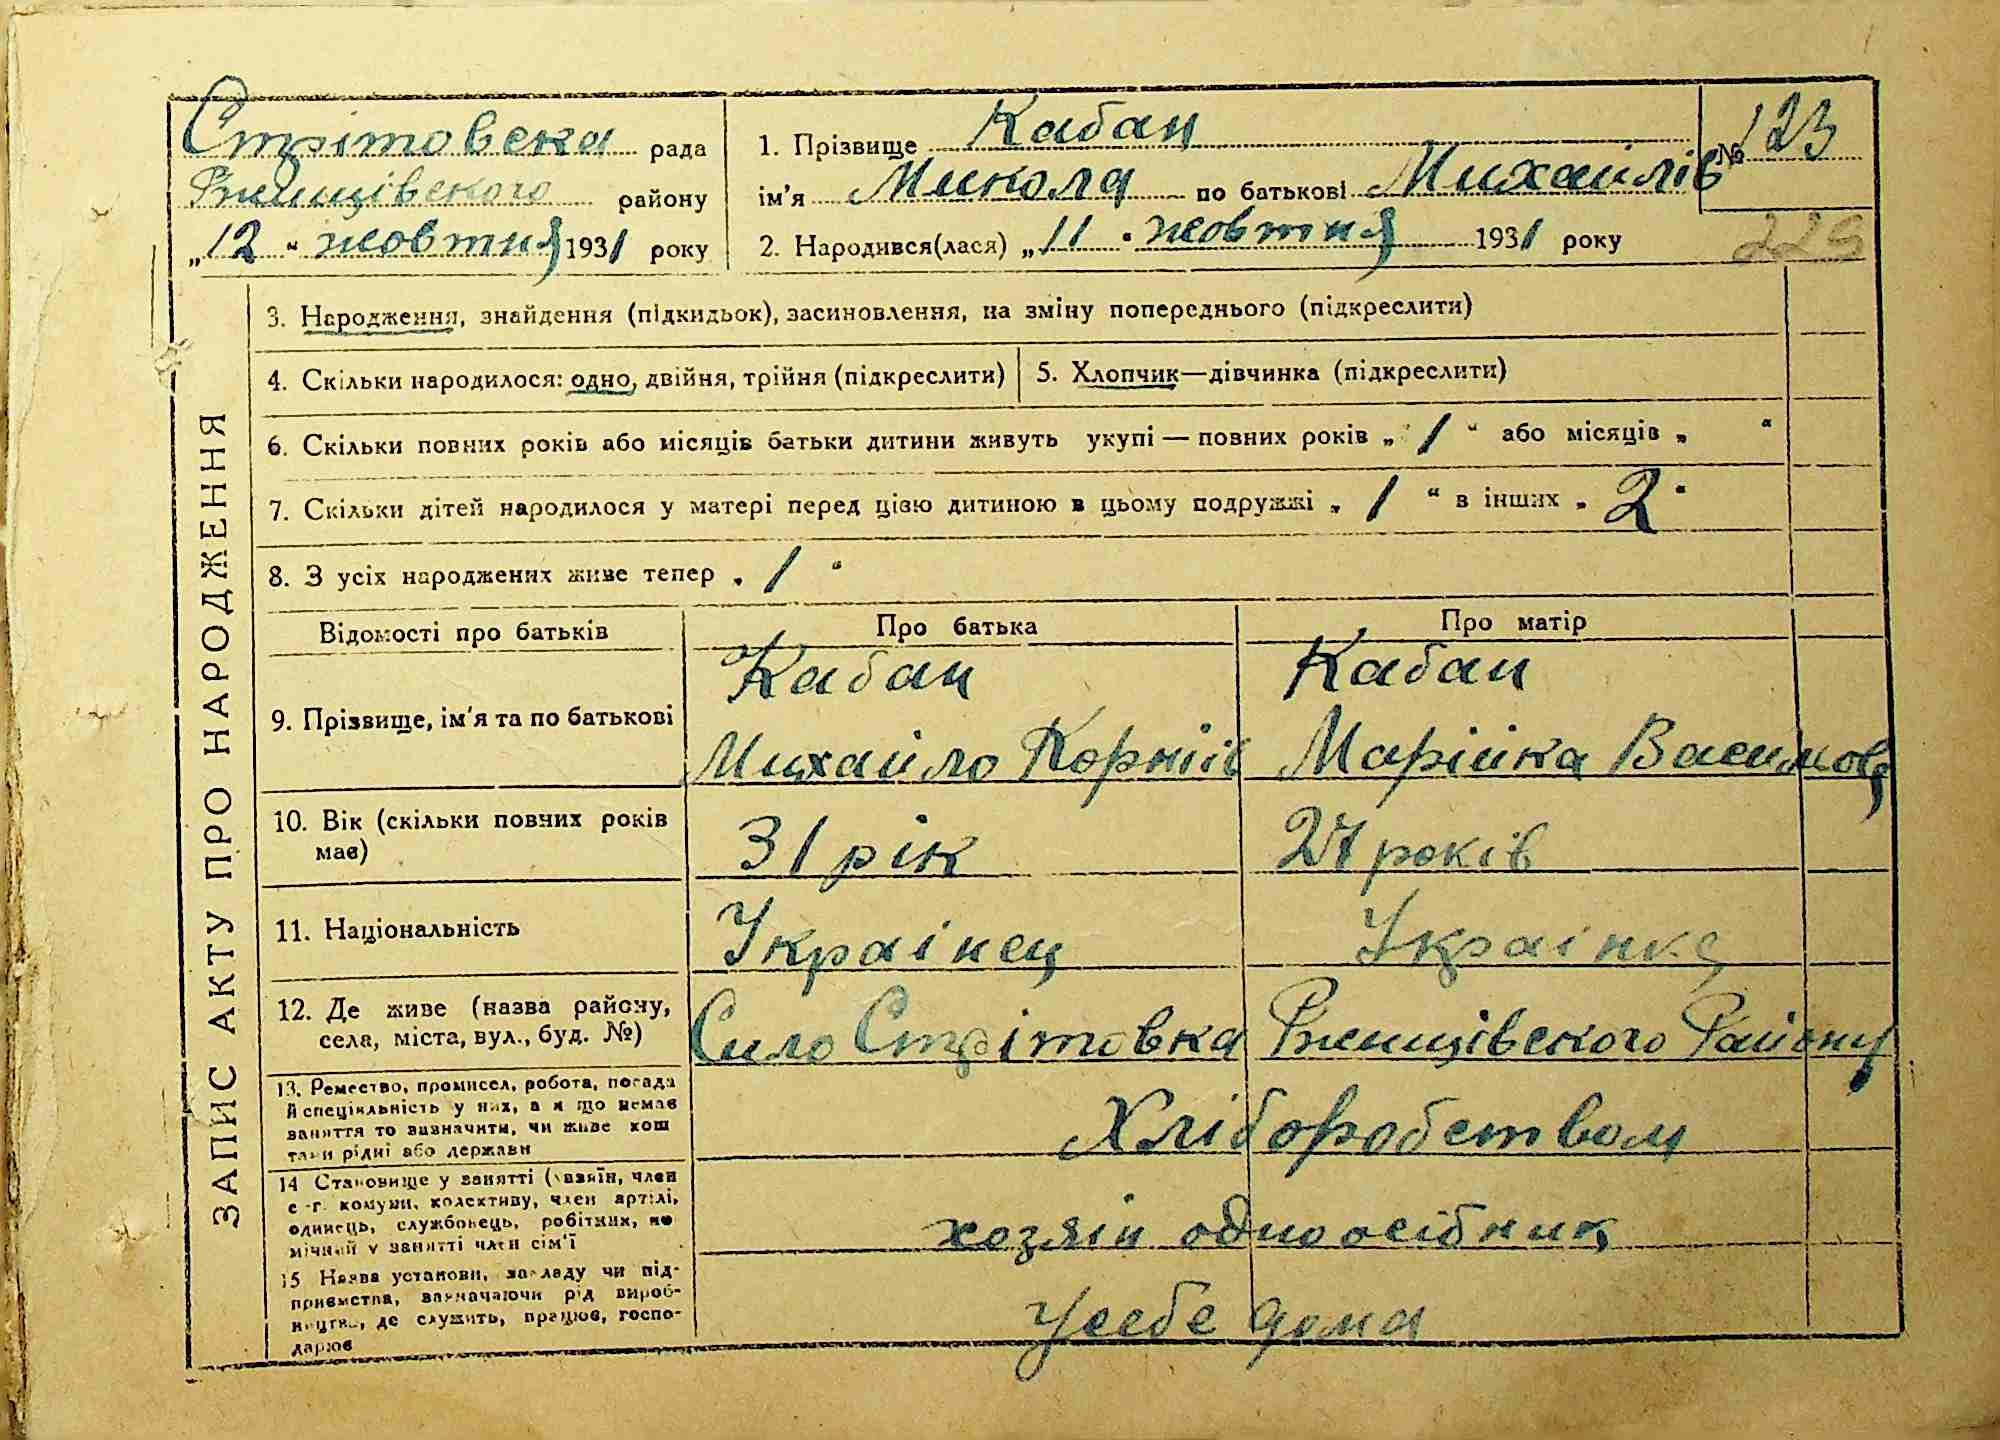 Стрітовска рада
Ржищівского району
„12“ жовтня 1931 року
1. Прізвище Кабан
ім'я Микола по батькові Михайлів
2. Народився(лася) „11“ жовтня 1931 року
№ 123
225
ЗАПИС АКТУ ПРО НАРОДЖЕННЯ
3. Народження, знайдення (підкидьок), засиновлення, на зміну попереднього (підкреслити)
4. Скільки народилося: одно, двійня, трійня (підкреслити)
5. Хлопчик—дівчинка (підкреслити)
6. Скільки повних років або місяців батьки дитини живуть укупі — повних років „1“ або місяців „ “
7. Скільки дітей народилося у матері перед цією дитиною в цьому подружжі „1“ в інших „2“
8. З усіх народжених живе тепер „1“
Відомості про батьків Про батька Про матір
9. Прізвище, ім'я та по батькові
Кабан
Михайло Корніїв
Кабан
Марійка Василова
10. Вік (скільки повних років
має)
31 рік
27 років
11. Національність
Украінец
Украінка
12. Де живе (назва району,
села, міста, вул., буд. №)
Сило Стрітовка Ржищівского Району
13. Ремество, промисел, робота, посада
й спеціяльність у них, а як що немає
заняття то визначити, чи живе кош
тами рідні або держави
Хліборобством
14 Становище у занятті (хазяїн, член
с-г. комуни, колективу, член артілі,
одинець, службовець, робітник, по
мічний у занятті член сім'ї
хозяін одноосібник
15 Назва установи, закладу чи під-
приємства, зазначаючи рід вироб-
ництва, де служить, працює, госпо-
дарює
Усебе дома